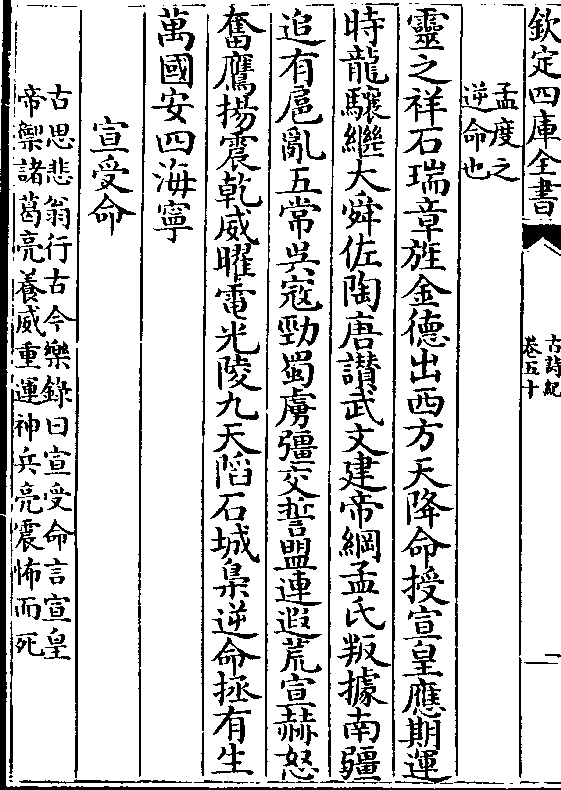 欽定四庫全書
古詩紀
卷五十
一
孟度之
逆命也
靈之祥石瑞章旌金德出西方天降命授宣皇應期運
時龍驤繼大舜佐陶唐讃武文建帝綱孟氏叛據南疆
追有扈亂五常吳寇勁蜀虜彊交誓盟連遐荒宣赫怒
奮鷹揚震乾威曜電光陵九天䧟石城梟逆命拯有生
萬國安四海寧
宣受命
古思悲翁行古今樂錄曰宣受命言宣皇
帝禦諸葛亮養威重運神兵亮震怖而死